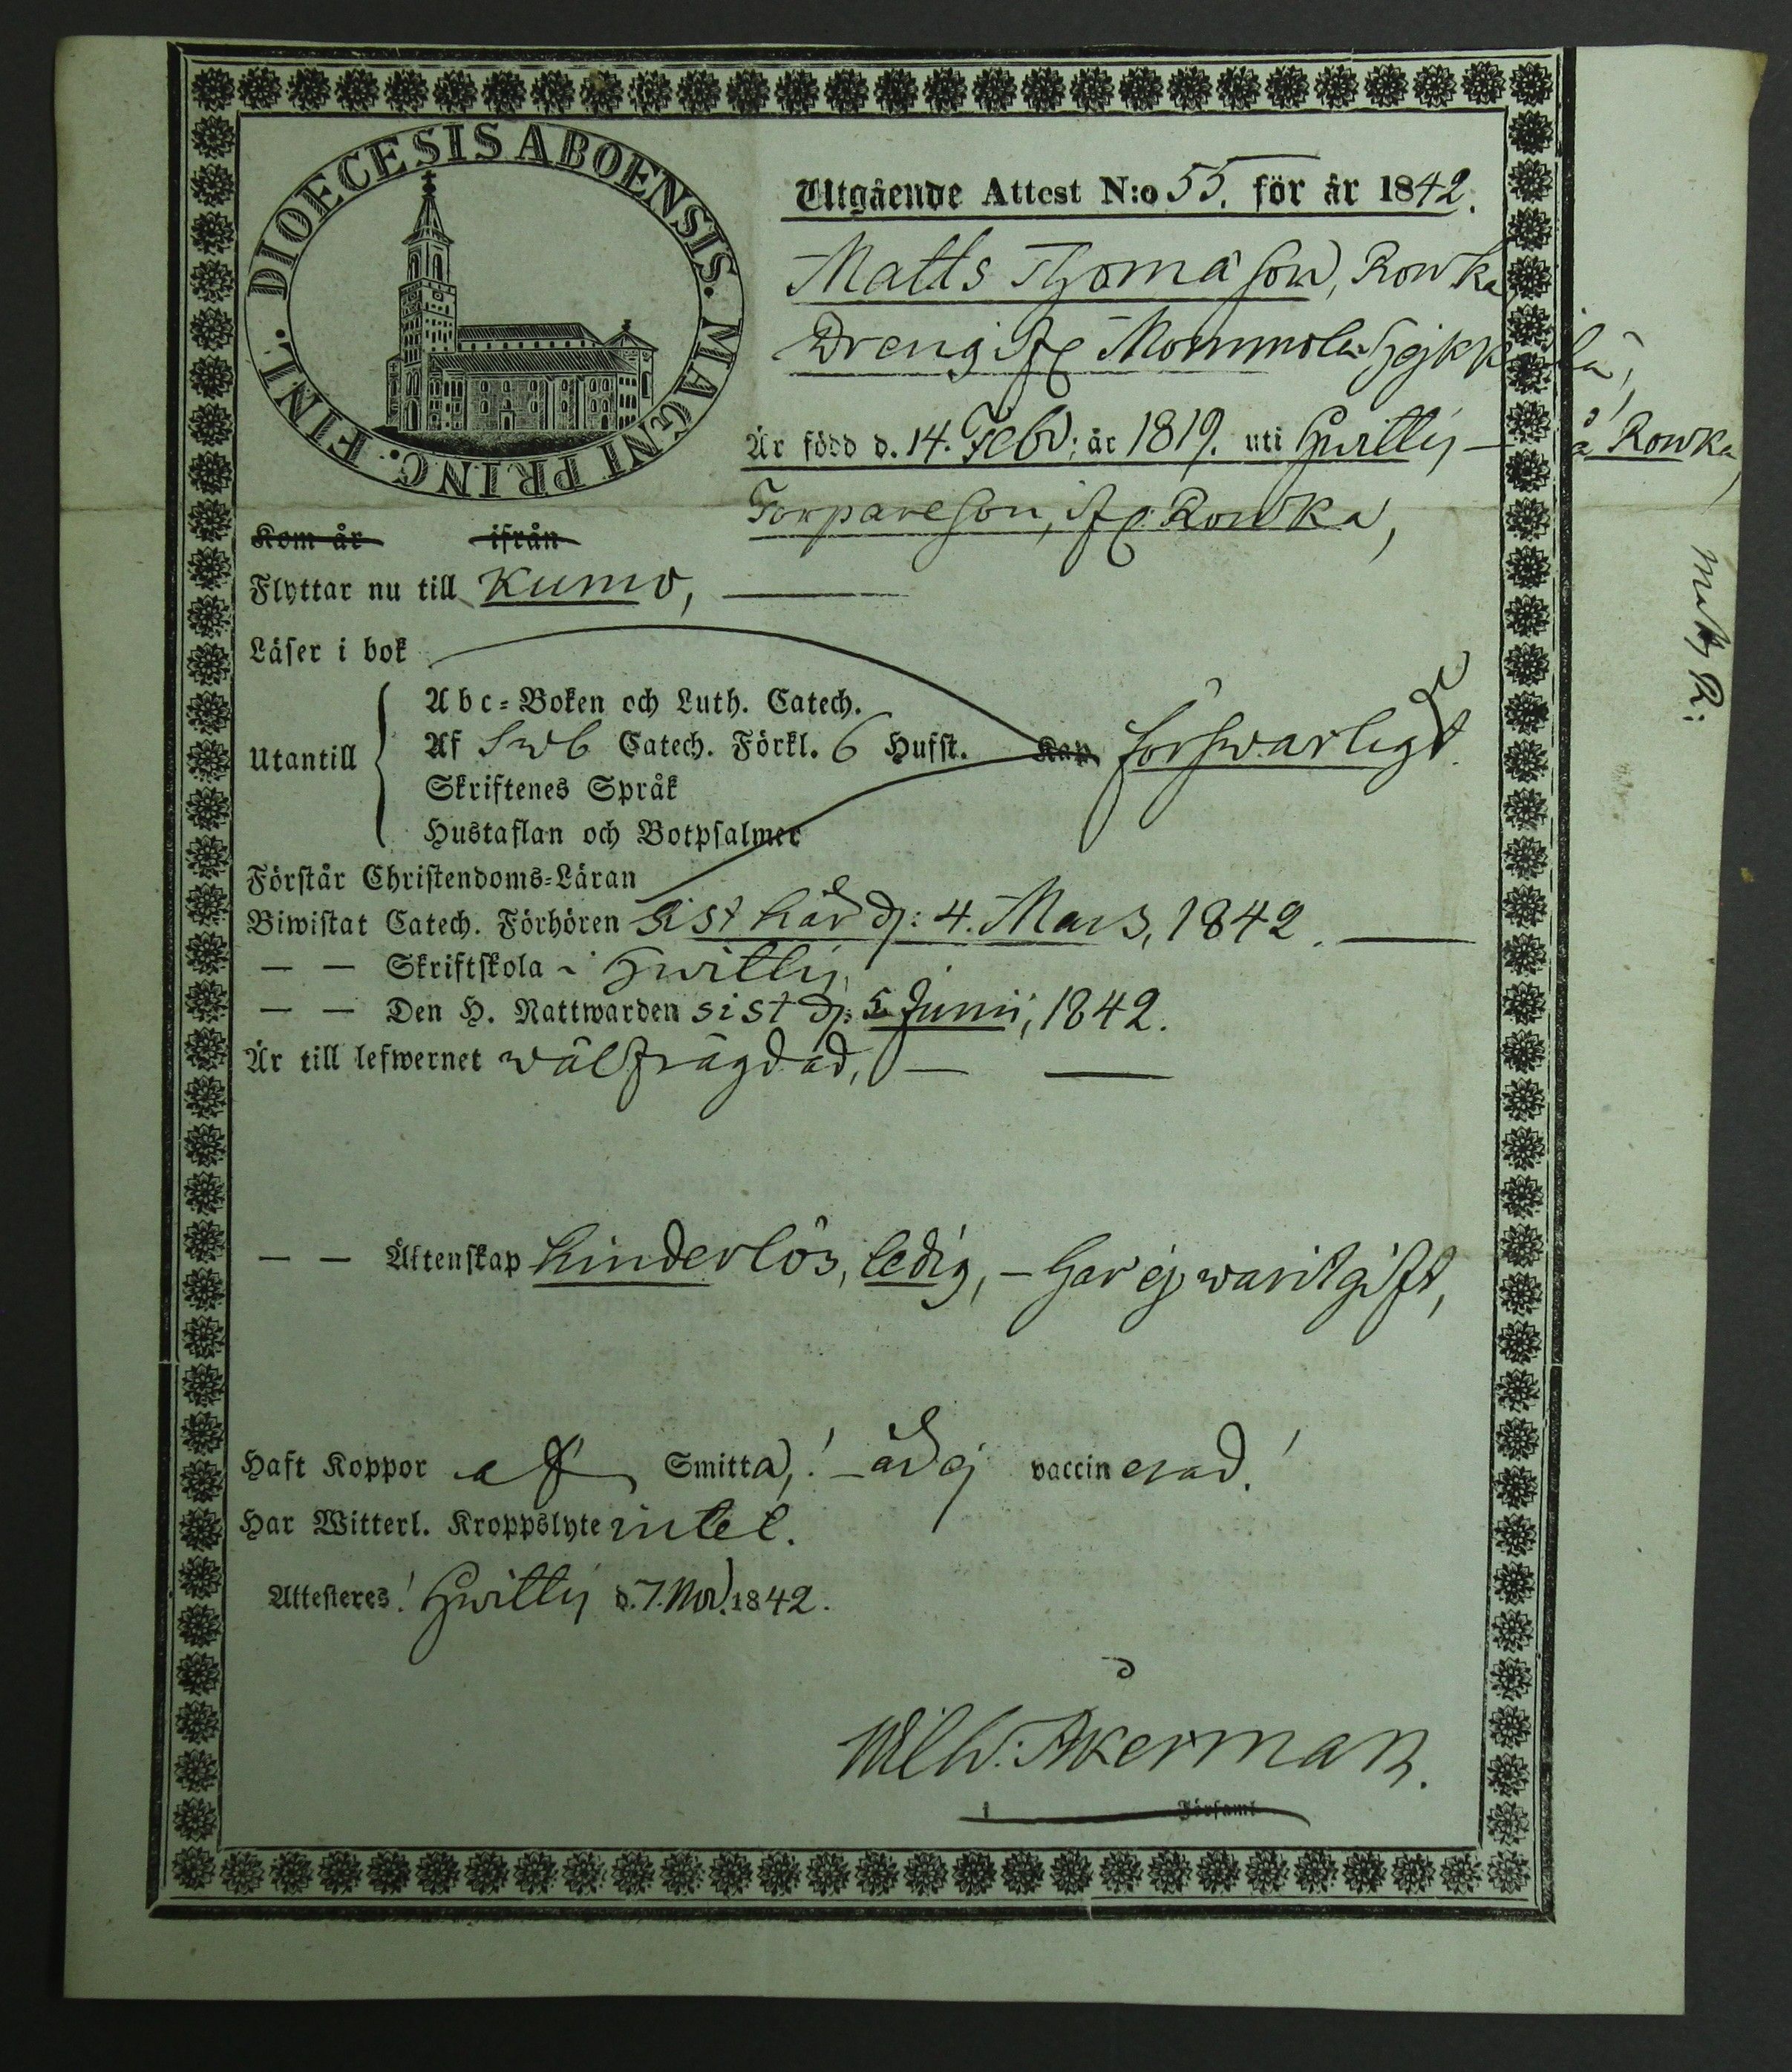 DIOECESIS ABOENSIS. MAGNI PRINC. FINL.
Utgående Attest N:o 55. för år 1842.
Matts Thomasson, Rowka
Dreng fr Mommola Hejkkilä,
Är född d. 14. Febr: år 1819. uti Hvittis — å Rowka,
Torpareson, fr Rowka,
Kom år ifrån
Flyttar nu till Kumo,
Läser i bok
Abc-Boken och Luth. Catech.
Utantill Af Swb Catech. Förkl. 6 Hufst. Kan förswarligt.
Skriftenes Språk
Hustaflan och Botpsalmer
Förstår Christendoms-Läran
Biwistat Catech. Förhören sist här d: 4. Mars, 1842.
— — Skriftskola i Hwittis,
— — Den H. Nattwarden sist d: 5 Junii, 1842.
Är till lefwernet wälfrägdad, —
— — Äktenskap hinderlös, ledig, — har ej warit gift,
Haft Koppor af Smitta,! — är ej vaccinerad!
Har Witterl. Kroppslyte intet.
Attesteres! Hwittis d. 7. Nov. 1842.
Wilh: Åkerman.
i Församl
Matts R: